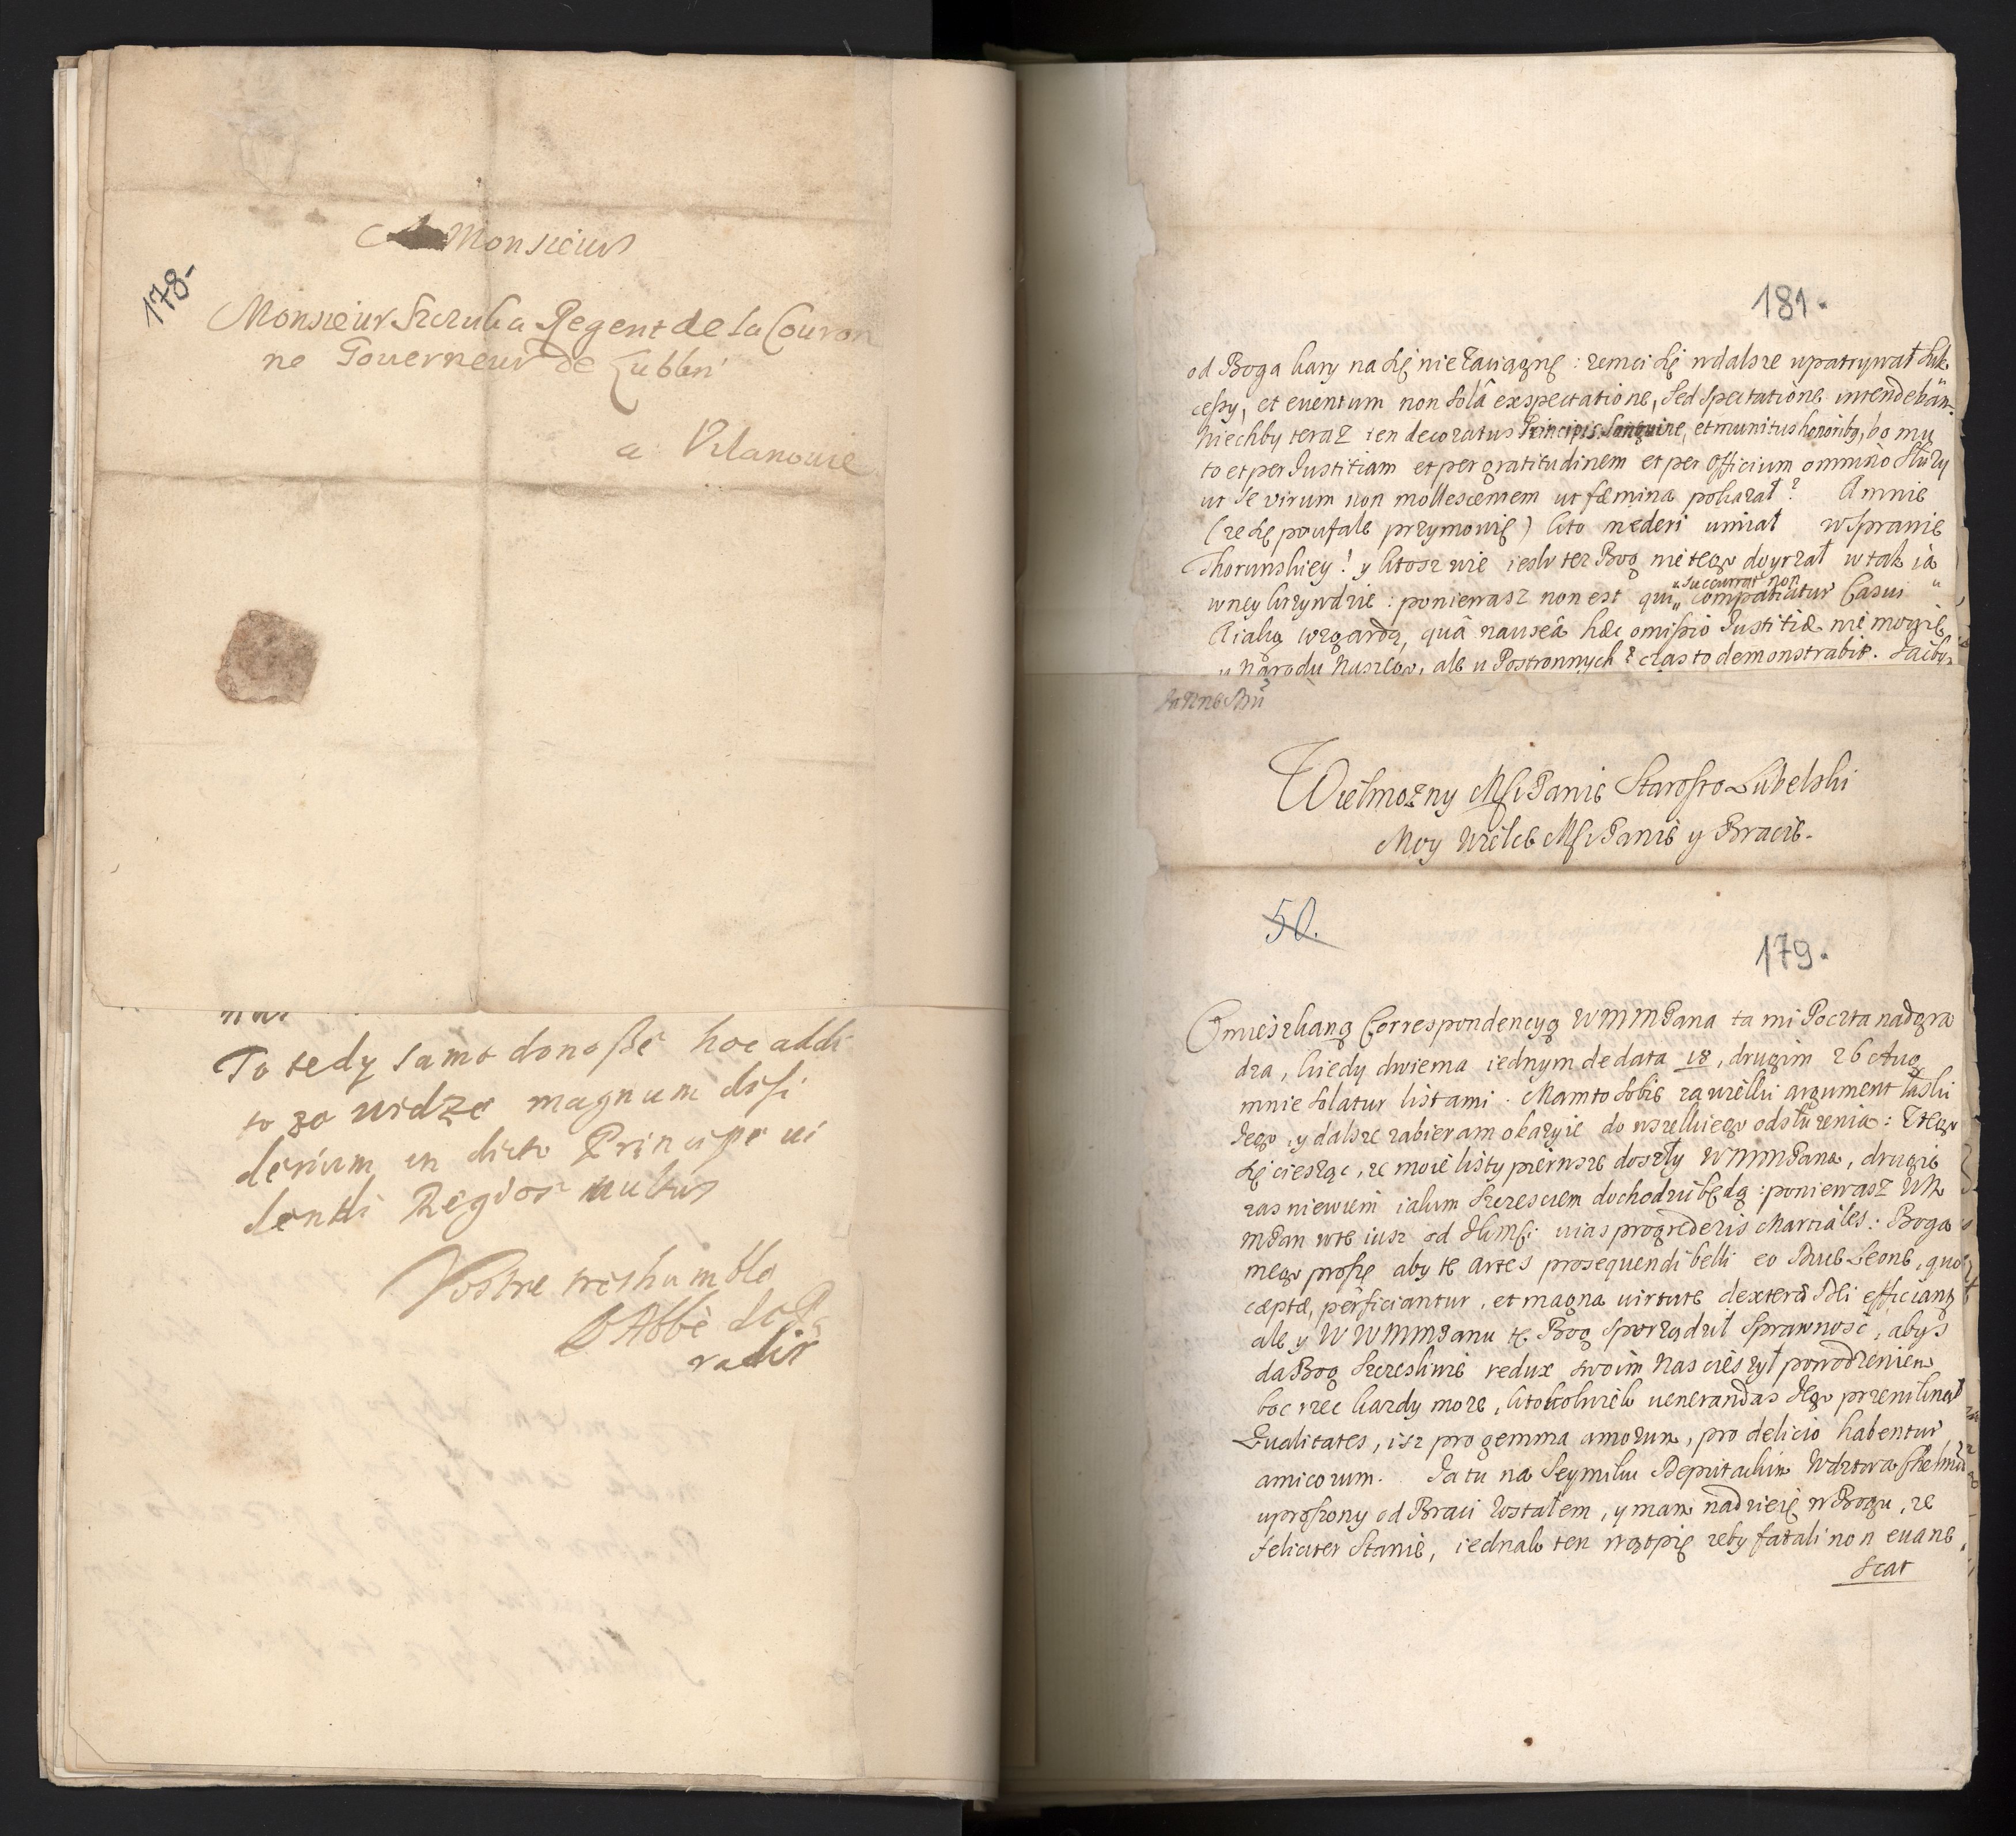 178-
A Monsieur
Monsieur Szczuka Regent de la Couron
ne Gouverneur de Lublin
a Vilanouie
To tedy samo donoszę hoc addi
to zo widzę magnum desi
derium in dicto Principe vi
dendi Regios vultus
Vostre treshumble
L'Abbè de
radir
181.
od Boga kary na się nie zaciągnę: zemci się w dalsze upatrywał suk
cessy, et eventum non solâ exspectatione, sed spectatione intendebam.
Niechby teraz ten decoratus Principis Sanguine, et munitus honoribq, bo mu
to et per Justitiam et per gratitudinem et per officium omnino służy
ut se virum non mollescentem ut fæmina pokazał? A mnie
(ze się poufale przymowię) kto mederi umiał w Sprawie
Thorunskiey! y ktosz wie iesli tez Bog nie tego doyrzał w tak ia
wney krzywdzie: poniewasz non est qui succurrat non compatiatur Casui
A iaką wzgardą, quâ nauseâ hæc omissio Justitiæ nie mowię
u Narodu Naszego, ale u Postronnych? czas to demonstrabit.
Wielmozny MSci Panie Starosto Lubelski
Moy Wielce MSci Panie y Bracie.
50.
179.
Omieszkaną Correspondencyą WMMPana ta mi Poczta nadgra
dza, kiedy dwiema iednym de data 18, drugim 26 Aug
mnie solatur listami. Mam to sobie za wielki argument łaski
Jego, y dalsze zabieram okazyie do wszelkiego odsłuzenia: Z tego
się ciesząc, ze moie listy pierwsze doszły WMMPana, drugie
zas niewiem iakim szczesciem dochodzić będą: poniewasz WM
MPan wte iusz od KJMSci vias progrederis Martiales: Boga
mego proszę aby te artes prosequendi belli eo Duce Leone, quo
cæptæ, perficiantur, et magna virtute dextera Dei efficiant
ale y W WMMPanu tę Bog sporządził sprawnosć, abys
da Bog szczesliwie redux swoim nas cieszył powodzeniem
boc rzec kazdy moze, ktokolwiek venerandas Jego przeniknął
Qualitates, isz pro gemma amorum, pro delicio habentur
amicorum. Ja tu na Seymiku Deputackim
uproszony od Braci zostałem, y mam nadzieię w Bogu, ze
feliciter stanie, iednak ten wątpię zeby fatali non evane
scat